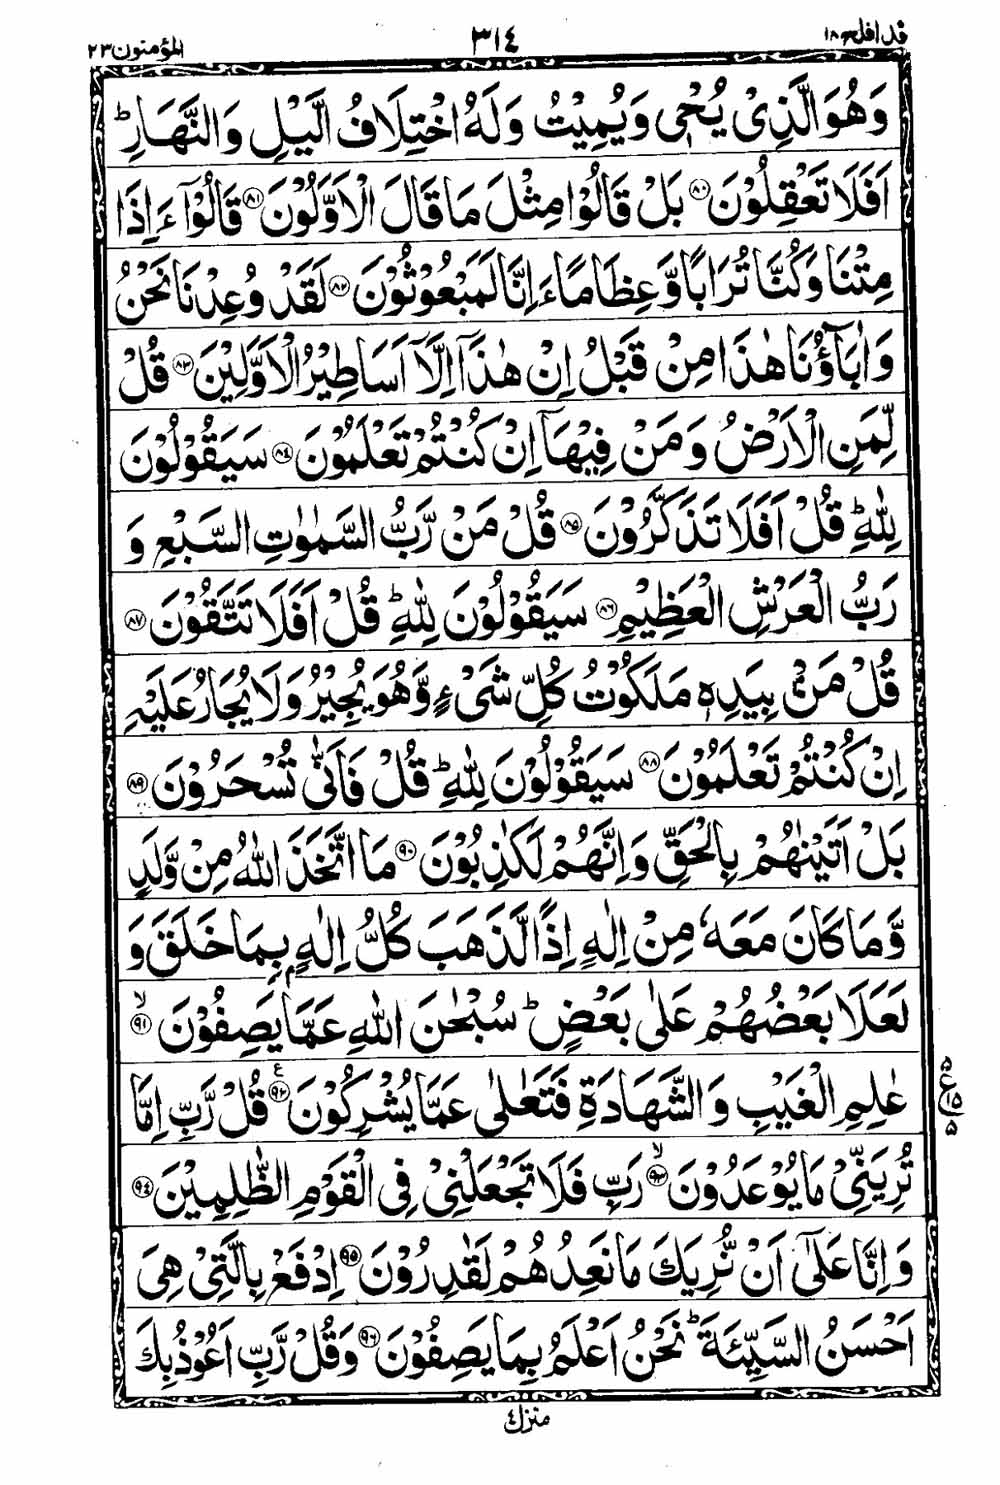 قد افلح ١٨ ٣١٤ المؤمنون ٢٣
وَهُوَ الَّذِىْ يُحْىٖ وَيُمِيْتُ وَلَهُ اخْتِلَافُ الَّيْلِ وَالنَّهَارِ ؕ
اَفَلَا تَعْقِلُوْنَ ۝٨٠ بَلْ قَالُوْا مِثْلَ مَا قَالَ الْاَوَّلُوْنَ ۝٨١ قَالُوْٓا ءَاِذَا
مِتْنَا وَكُنَّا تُرَابًا وَّعِظَامًا ءَاِنَّا لَمَبْعُوْثُوْنَ ۝٨٢ لَقَدْ وُعِدْنَا نَحْنُ
وَاٰبَآؤُنَا هٰذَا مِنْ قَبْلُ اِنْ هٰذَآ اِلَّآ اَسَاطِيْرُ الْاَوَّلِيْنَ ۝٨٣ قُلْ
لِّمَنِ الْاَرْضُ وَمَنْ فِيْهَآ اِنْ كُنْتُمْ تَعْلَمُوْنَ ۝٨٤ سَيَقُوْلُوْنَ
لِلّٰهِ ؕ قُلْ اَفَلَا تَذَكَّرُوْنَ ۝٨٥ قُلْ مَنْ رَّبُّ السَّمٰوٰتِ السَّبْعِ وَ
رَبُّ الْعَرْشِ الْعَظِيْمِ ۝٨٦ سَيَقُوْلُوْنَ لِلّٰهِ ؕ قُلْ اَفَلَا تَتَّقُوْنَ ۝٨٧
قُلْ مَنْۢ بِيَدِهٖ مَلَكُوْتُ كُلِّ شَىْءٍ وَّهُوَ يُجِيْرُ وَلَا يُجَارُ عَلَيْهِ
اِنْ كُنْتُمْ تَعْلَمُوْنَ ۝٨٨ سَيَقُوْلُوْنَ لِلّٰهِ ؕ قُلْ فَاَنّٰى تُسْحَرُوْنَ ۝٨٩
بَلْ اَتَيْنٰهُمْ بِالْحَقِّ وَاِنَّهُمْ لَكٰذِبُوْنَ ۝٩٠ مَا اتَّخَذَ اللّٰهُ مِنْ وَّلَدٍ
وَّمَا كَانَ مَعَهٗ مِنْ اِلٰهٍ اِذًا لَّذَهَبَ كُلُّ اِلٰهٍۢ بِمَا خَلَقَ وَ
لَعَلَا بَعْضُهُمْ عَلٰى بَعْضٍ ؕ سُبْحٰنَ اللّٰهِ عَمَّا يَصِفُوْنَ ۙ۝٩١
عٰلِمِ الْغَيْبِ وَالشَّهَادَةِ فَتَعٰلٰى عَمَّا يُشْرِكُوْنَ ۝٩٢ ع قُلْ رَّبِّ اِمَّا
٥ ع ١٥ ٥
تُرِيَنِّىْ مَا يُوْعَدُوْنَ ۙ۝٩٣ رَبِّ فَلَا تَجْعَلْنِىْ فِى الْقَوْمِ الظّٰلِمِيْنَ ۝٩٤
وَاِنَّا عَلٰٓى اَنْ نُّرِيَكَ مَا نَعِدُهُمْ لَقٰدِرُوْنَ ۝٩٥ اِدْفَعْ بِالَّتِىْ هِىَ
اَحْسَنُ السَّيِّئَةَ ؕ نَحْنُ اَعْلَمُ بِمَا يَصِفُوْنَ ۝٩٦ وَقُلْ رَّبِّ اَعُوْذُ بِكَ
منزل ٤